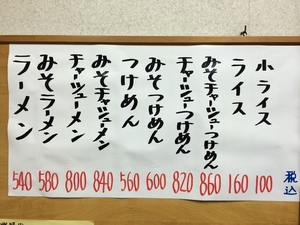 小ライス 100
ライス 160
みそチャーシューつけめん 860
チャーシューつけめん 820
みそつけめん 600
つけめん 560
みそチャーシューメン 840
チャーシューメン 800
みそラーメン 580
ラーメン 540
税込